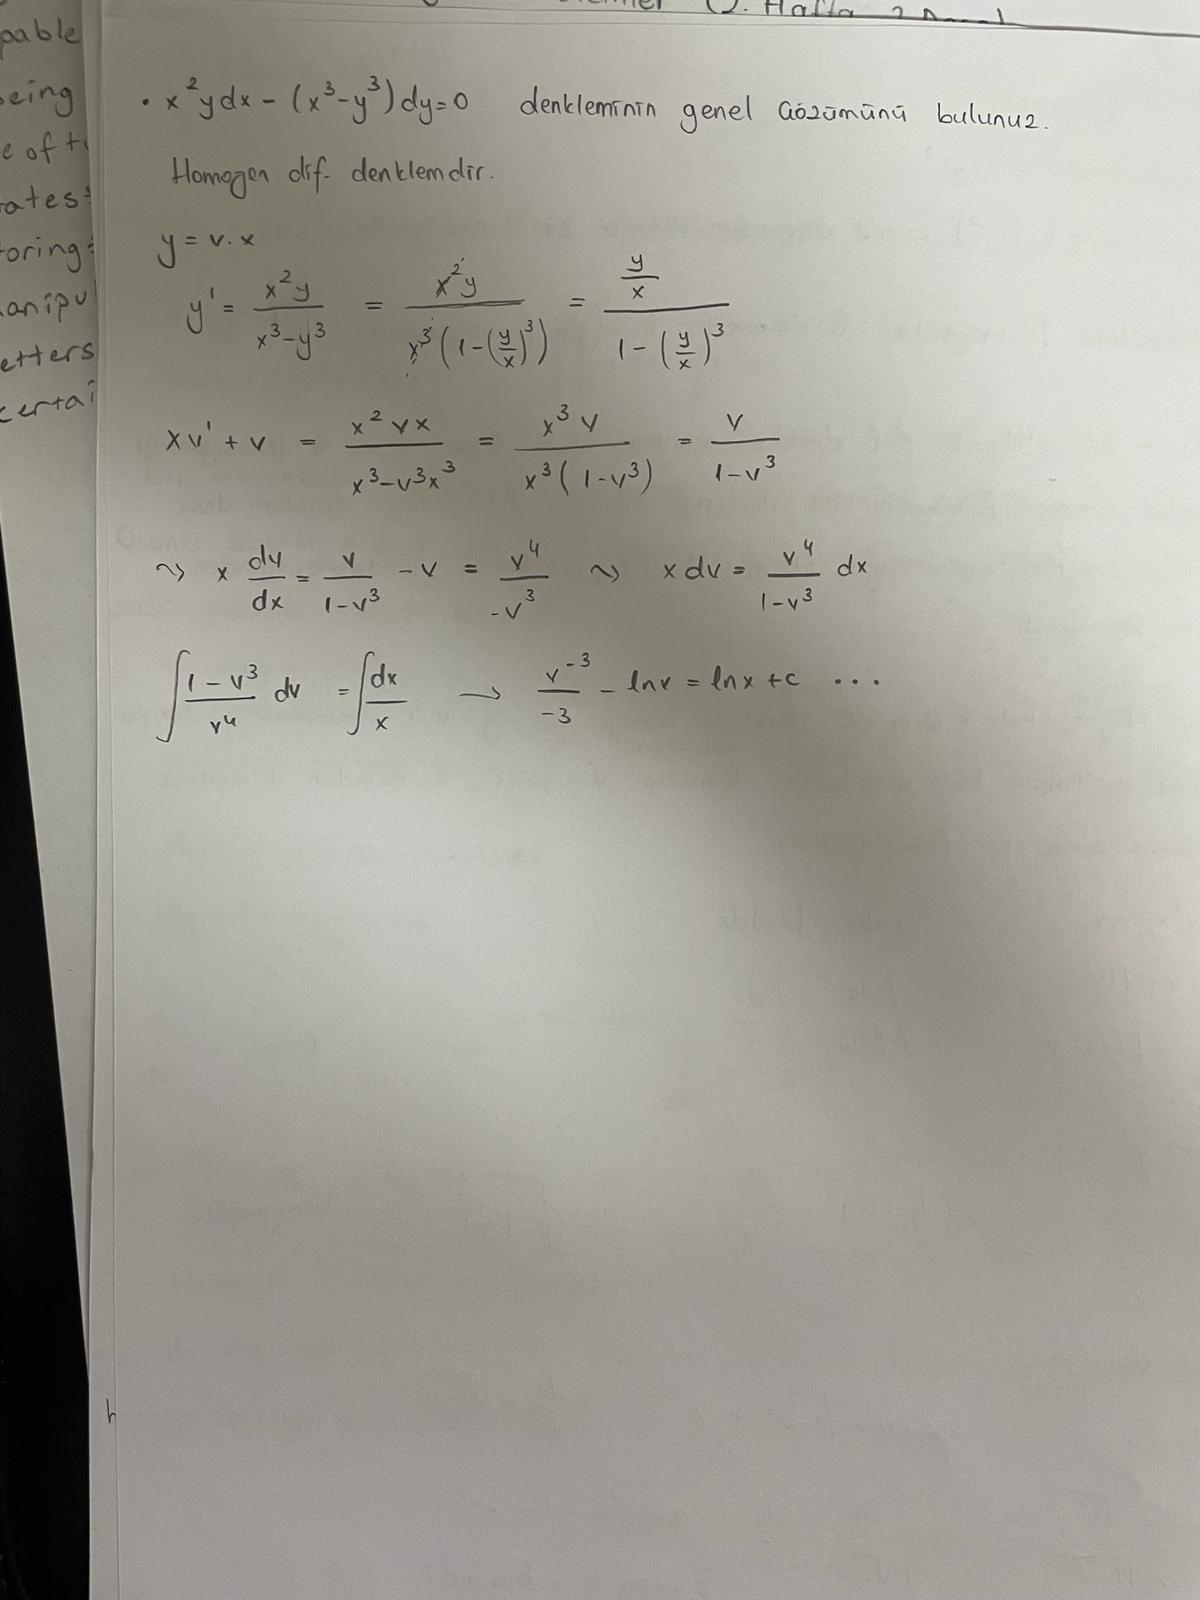 pable
eing
e of t
ates
oring
anipu
etters
certai
Hafta
• x²ydx - (x³-y³)dy=0 denkleminin genel çözümünü bulunuz.
Homogen dif. denklemdir.
y = v.x
y' = x²y / x³-y³ = x²y / x³(1-(y/x)³) = y/x / 1-(y/x)³
xv' + v = x² vx / x³-v³x³ = x³ v / x³(1-v³) = v / 1-v³
~> x dv/dx = v / 1-v³ - v = v⁴ / -v³ ~> x dv = v⁴ / 1-v³ dx
∫ 1-v³ / v⁴ dv = ∫ dx / x → v⁻³ / -3 - lnv = lnx + c ...
h